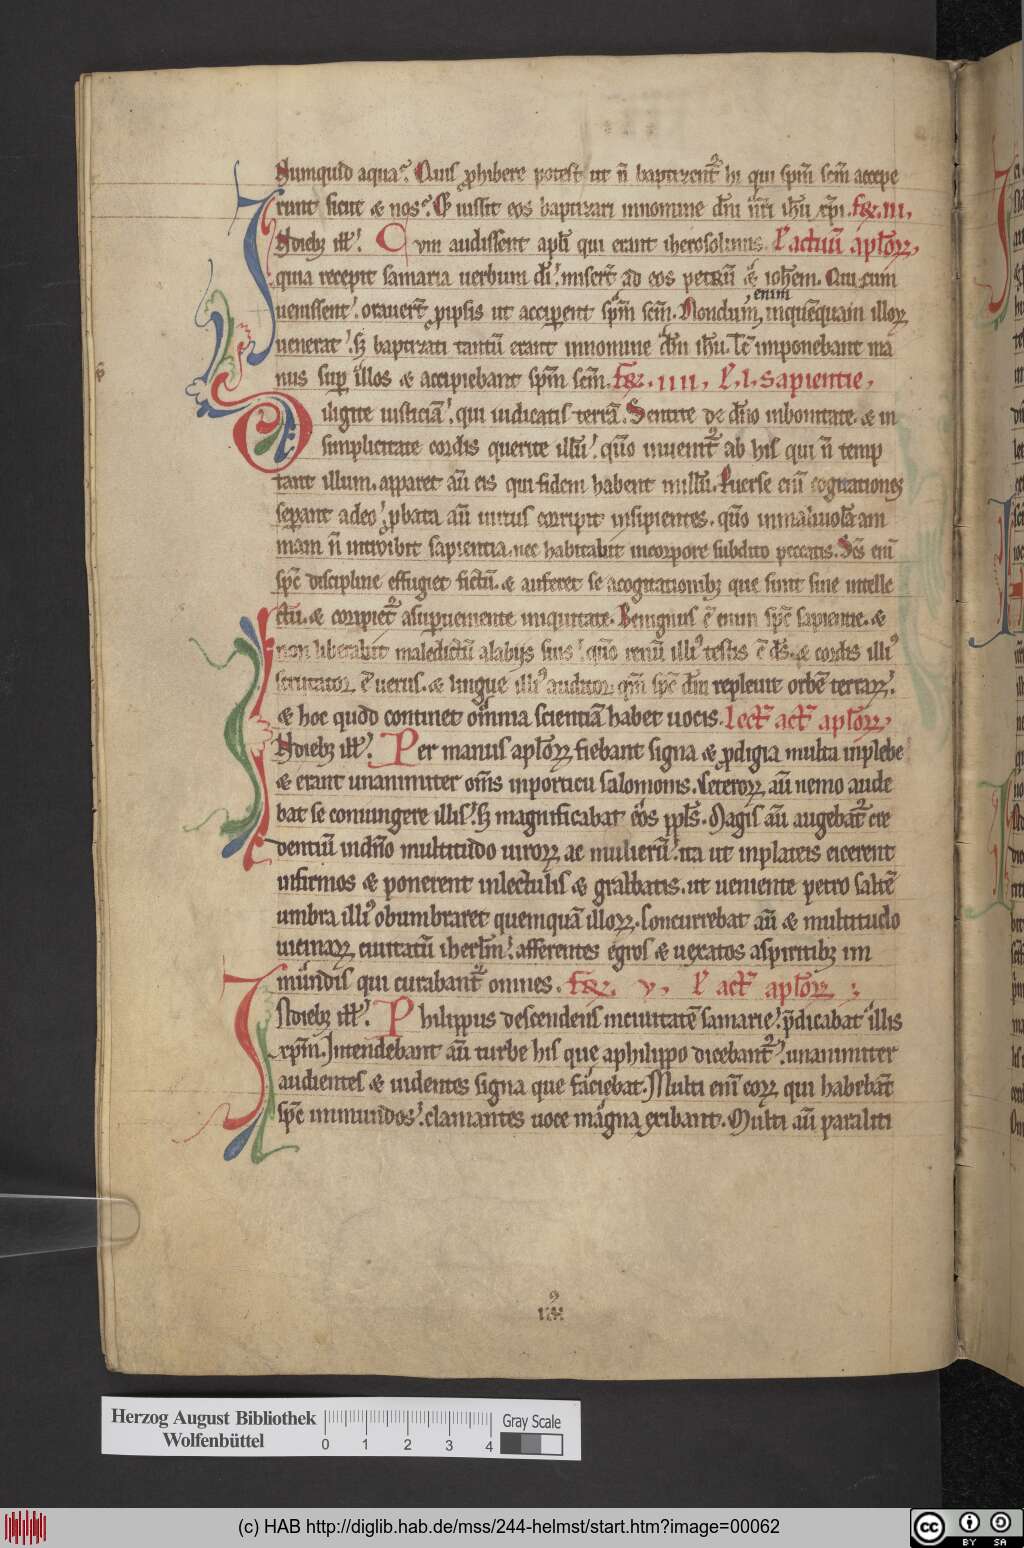 Numquid aquā? Quis ꝓhibere potest ut ñ baptizent᷑ hi qui spm̄ scm̄ accepe
runt sicut & nos? Et iussit eos baptizari innomine dñi nr̄i ihū xp̄i. fer̄. iii.
Indiebꝫ ill̄. Cum audissent apl̄i qui erant iherosolimis. L' actuū apl̄oꝝ.
quia recepit samaria uerbum dī. miser̄t ad eos petrū & ioh̄em. Qui cum
uenissent. orauer̄t ꝓ ipsis ut acciꝑent spm̄ scm̄. Nondum enim inquēquam illoꝝ
uenerat. sꝫ baptizati tantū erant innomine dñi ihū. Tc̄ imponebant ma
nus suꝑ illos & accipiebant spm̄ scm̄. fer̄. iiii. L. l. sapientie.
Diligite iusticiā. qui iudicatis terrā. Sentite de dño inbonitate. & in
simplicitate cordis querite illū. qm̄o inuenit᷑ ab his qui ñ temp
tant illum. apparet aū eis qui fidem habent inillū. Peruerse enī cogitationes
seꝑant adeo. ꝓbata aū uirtus corripit insipientes. qm̄o inmaliuolā am
mam ñ introibit sapientia. nec habitabit incorpore subdito peccatis. Sc̄s enī
spc̄ discipline effugiet fictū. & auferet se acogitationibꝫ que sunt sine intelle
ctu. & coripiet᷑ asuꝑueniente iniquitate. Benignus ē enim spc̄ sapientie. &
non liberabit maledictū alabiis suis. qm̄o renū illiꝰ testis ē ds̄. & cordis illiꝰ
scrutator ē uerus. & lingue illiꝰ auditor. qm̄ spc̄ dñi repleuit orbē terraꝝ.
& hoc quod continet omnia scientiā habet uocis. Lect᷑ act᷑ apl̄oꝝ.
Indiebꝫ ill̄. Per manus apl̄oꝝ fiebant signa & ꝓdigia multa inplebe
& erant unanimiter om̄s inporticu salomonis. Ceteroꝝ aū nemo aude
bat se coniungere illis. sꝫ magnificabat eos ppl̄s. Magis aū augebat᷑ cre
dentiū indño multitudo uiroꝝ ac mulierū. ita ut inplateis eicerent
infirmos & ponerent inlectulis & grabatis. ut ueniente petro saltē
umbra illiꝰ obumbraret quemquā illoꝝ. Concurrebat aū & multitudo
uicinaꝝ ciuitatū iherlm̄. afferentes egros & uexatos aspiritibꝫ im
mundis qui curabant᷑ omnes. fer̄. v. L' act᷑ apl̄oꝝ.
Indiebꝫ ill̄. Philippus descendens inciuitatē samarie. p̄dicabat illis
xpm̄. Intendebant aū turbe his que aphilippo dicebant᷑. unanimiter
audientes & uidentes signa que faciebat. Multi enī eoꝝ qui habebāt
spc̄ inmundos. clamantes uoce magna exibant. Multi aū paraliti
Herzog August Bibliothek
Wolfenbüttel
0 1 2 3 4
Gray Scale
(c) HAB http://diglib.hab.de/mss/244-helmst/start.htm?image=00062
cc BY SA